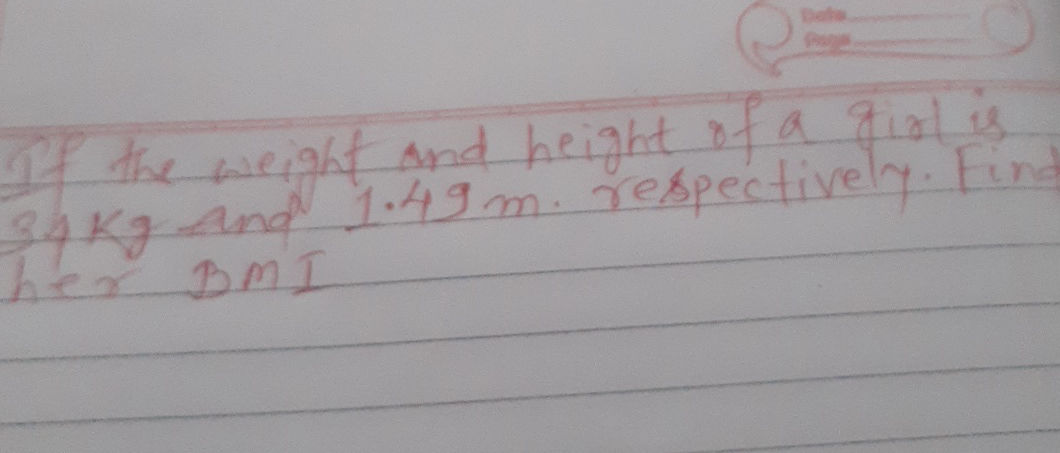 Date
Page
If the weight and height of a girl is
34 Kg and 1.49 m. respectively. Find
her BMI